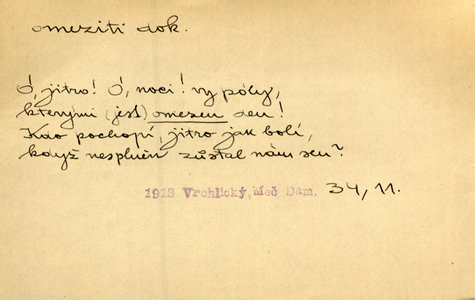 omeziti dok.
Ó, jitro! Ó, noci! vy póly,
kterými (jest) omezen den!
Kdo pochopí, jitro jak bolí,
když nesplněn zůstal nám sen?
1913 Vrchlický, Meč Dam. 34, 11.